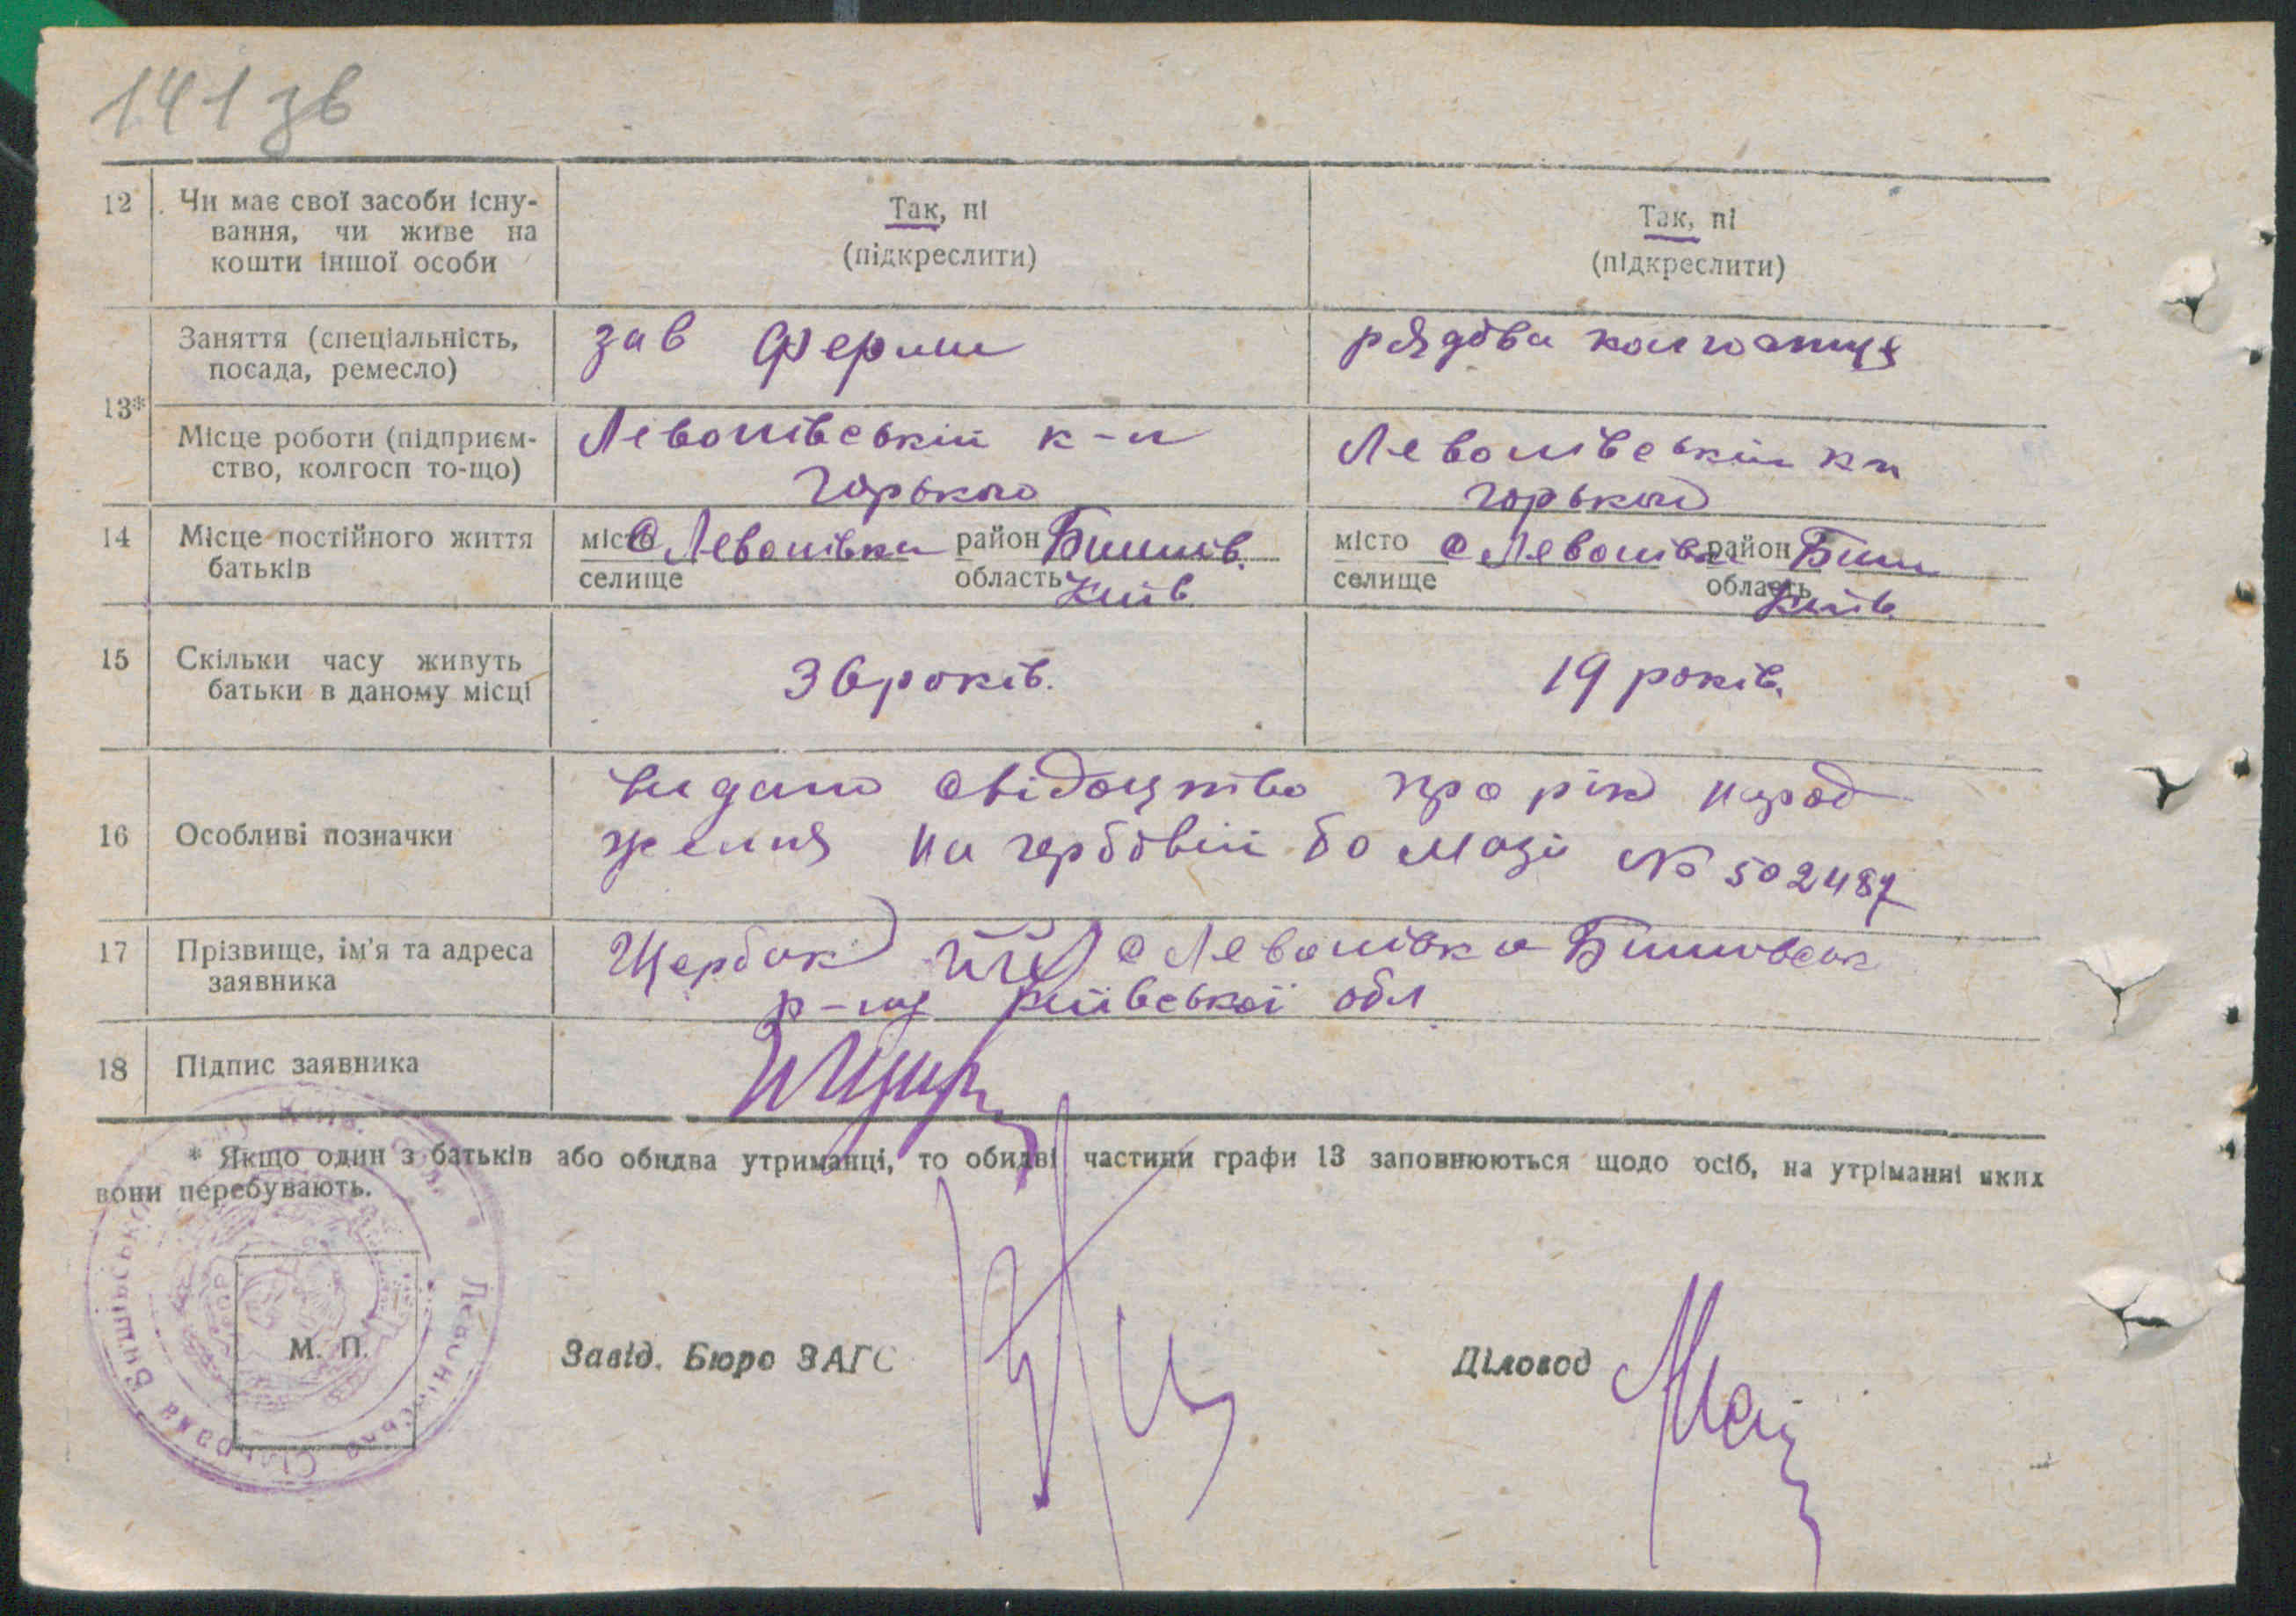 141 зв
12 Чи має свої засоби існу-
вання, чи живе на
кошти іншої особи
Так, ні
(підкреслити)
Так, ні
(підкреслити)
13*
Заняття (спеціальність,
посада, ремесло)
зав ферми
рядова колгоспниця
Місце роботи (підприєм-
ство, колгосп то-що)
Левонівській к-п
Горького
Левонівській кп
Горького
14 Місце постійного життя
батьків
місто с Левонівка район Бишів.
селище область Київ
місто с Левонівка район Биш
селище область Київ.
15 Скільки часу живуть
батьки в даному місці
36 років.
19 років.
16 Особливі позначки
видано свідоцтво про рік народ
ження на гербовій бомазі № 502487
17 Прізвище, ім'я та адреса
заявника
Щербак с Левонівка Бишовськ
р-ну Київської обл
18 Підпис заявника
* Якщо один з батьків або обидва утриманці, то обидві частини графи 13 заповнюються щодо осіб, на утріманні яких
вони перебувають.
М. П.
Завід. Бюро ЗАГС
Діловод